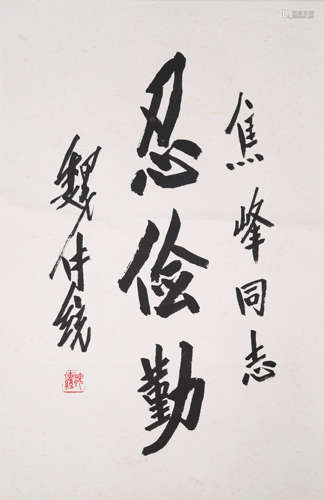 焦峰同志
忍俭勤
魏传统